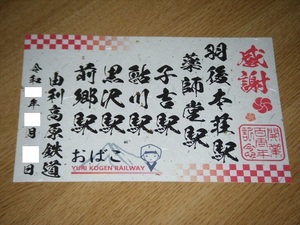 感謝
羽後本荘駅
薬師堂駅
子吉駅
鮎川駅
黒沢駅
前郷駅
おばこ
YURI KOGEN RAILWAY
由利高原鉄道
令和 年 月 日
開業
百周年
記念